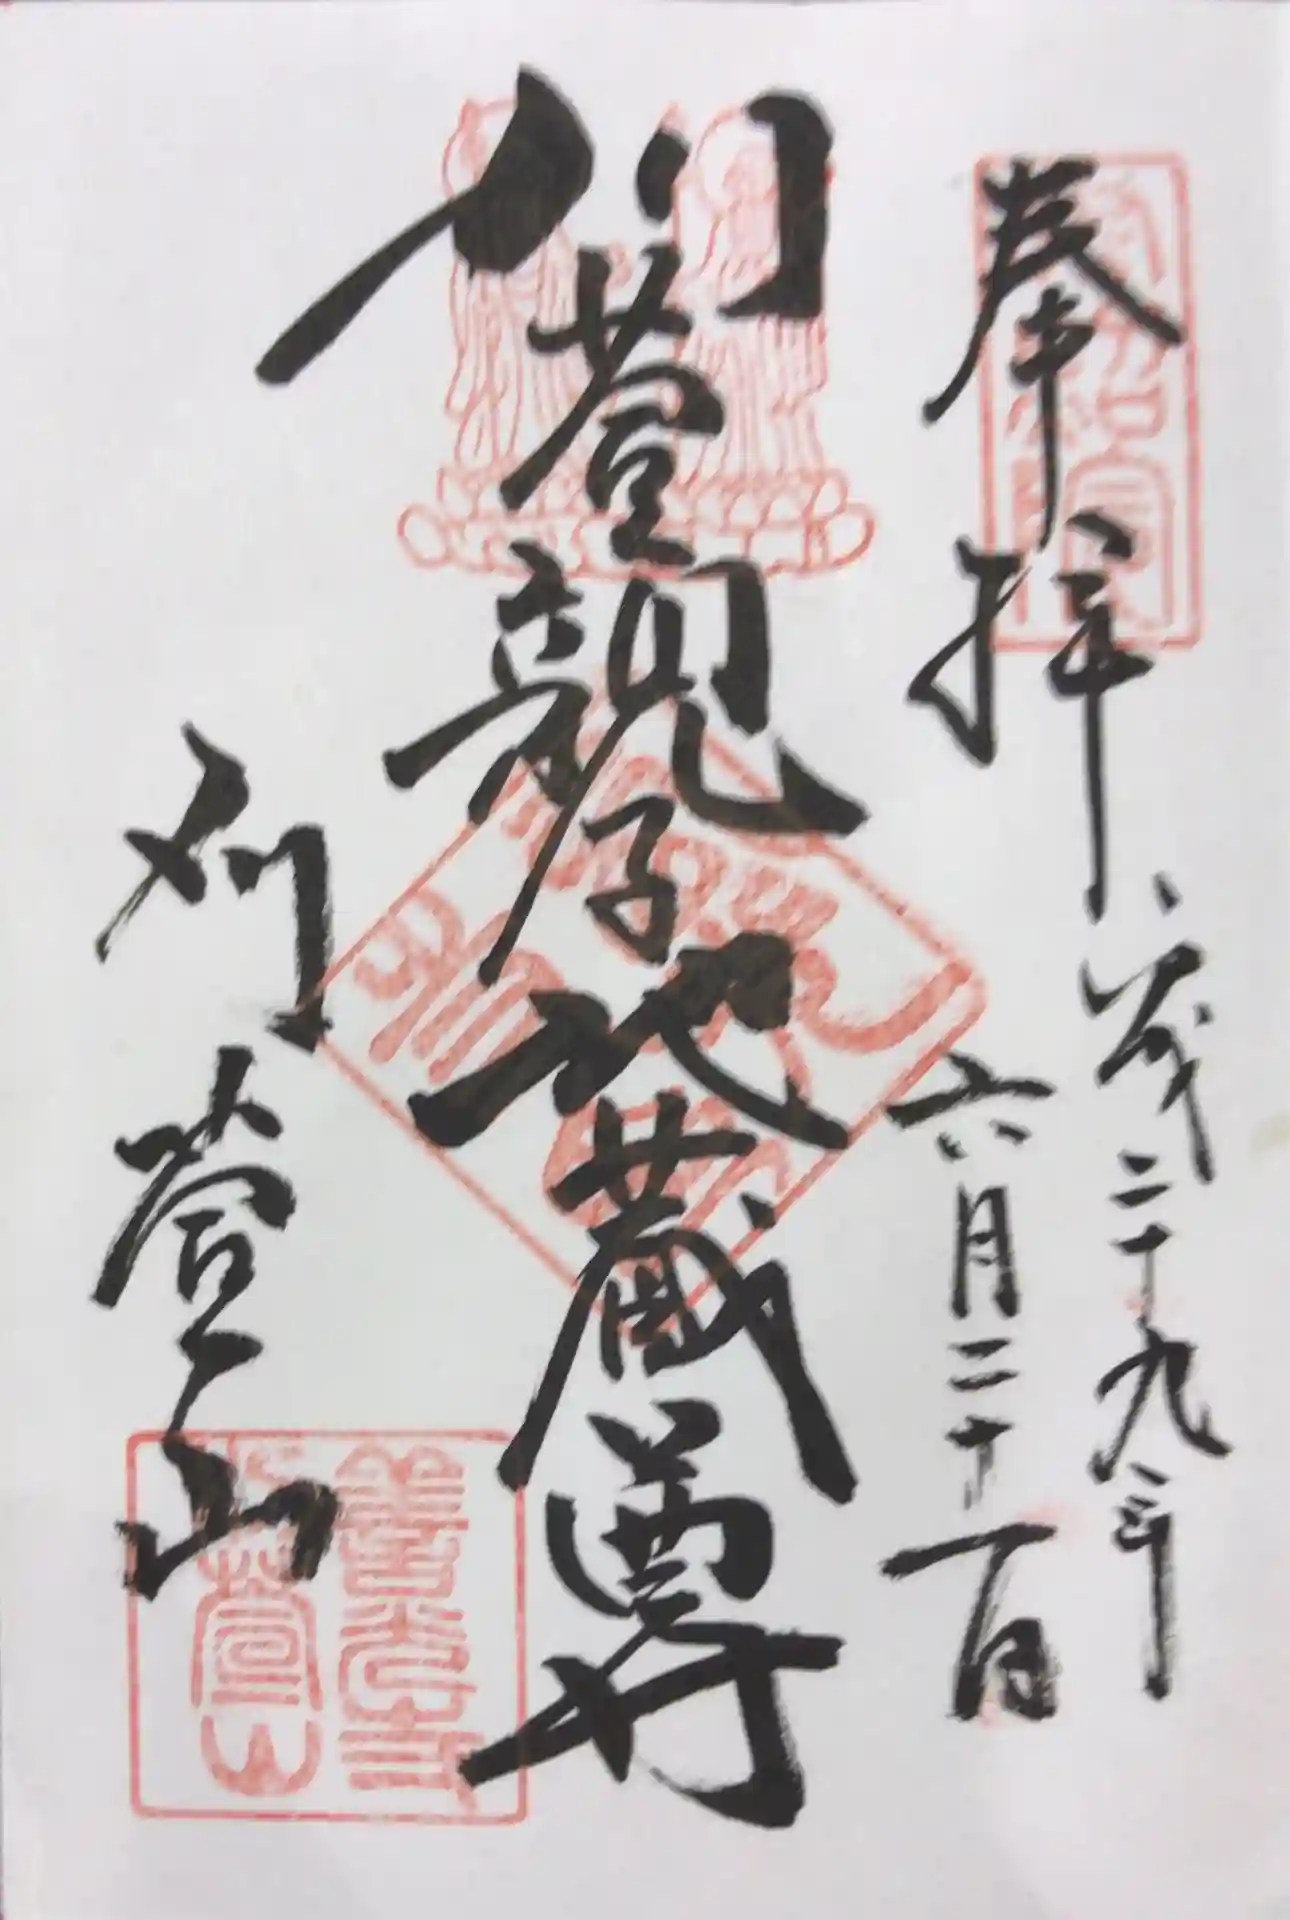 奉拝
平成二十九年
六月二十一日
刈萱親子地蔵尊
刈萱山
善光寺
苅萱山